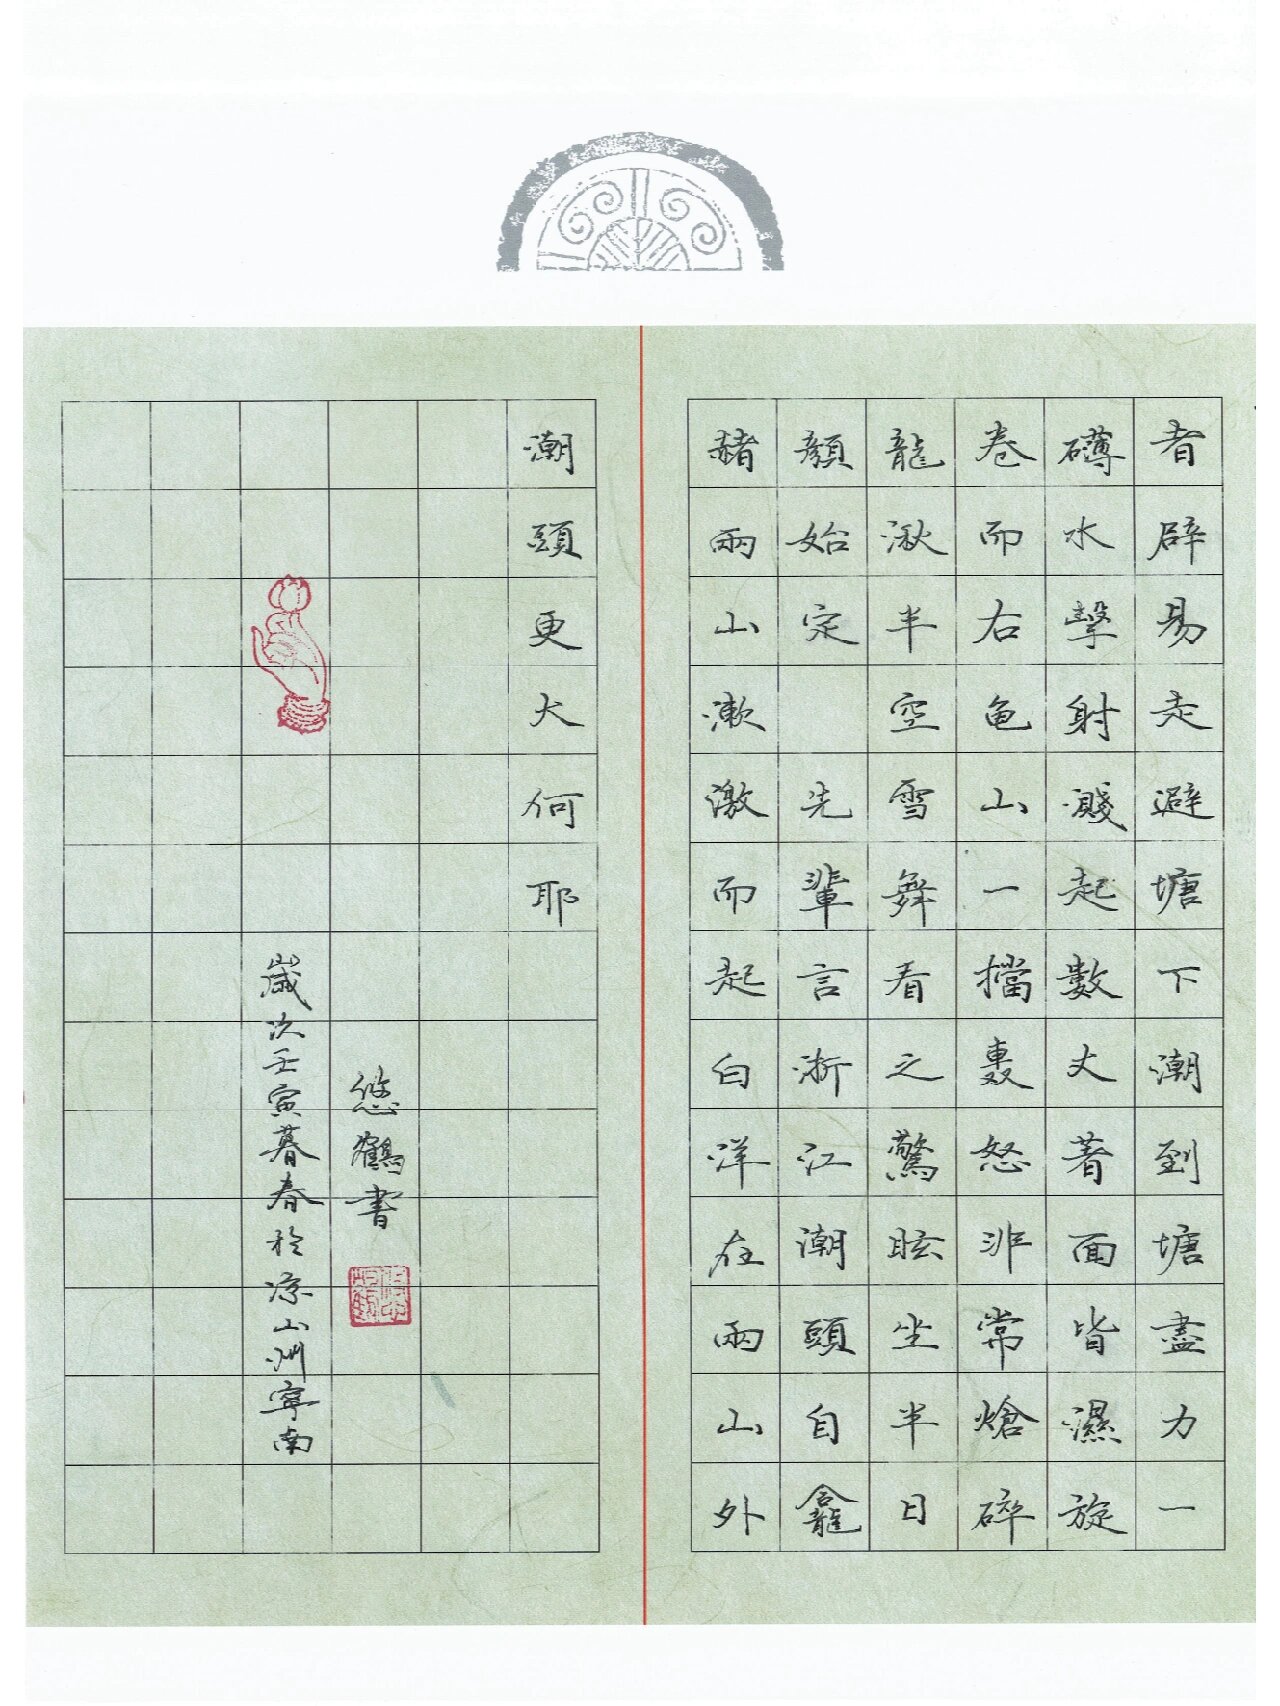 者辟易走避塘下潮到塘盡力一
礴水擊射濺起數丈著面皆濕旋
卷而右龟山一擋轟怒非常熗碎
龍湫半空雪舞看之驚眩坐半日
顏始定 先輩言浙江潮頭自龕
赭兩山漱激而起白洋在兩山外
潮頭更大何耶
悠鶴書
歲次壬寅暮春於凉山州寧南